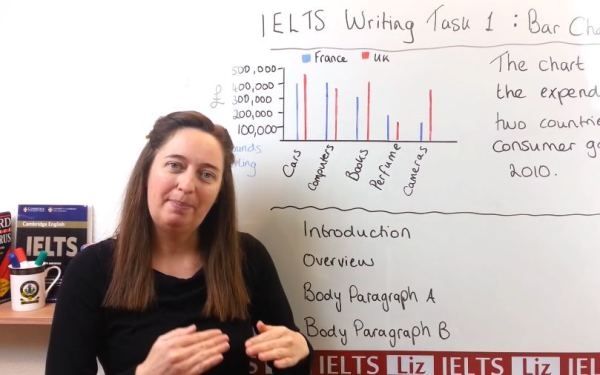 IELTS Writing Task 1 : Bar Cha
France UK
500,000
400,000
300,000
200,000
100,000
£
Cars
Computers
Books
Perfume
Cameras
The chart
the expend
two countrie
consumer go
2010.
Introduction
Overview
Body Paragraph A
Body Paragraph B
Cambridge English
IELTS
IELTS Liz IELTS Liz IEL